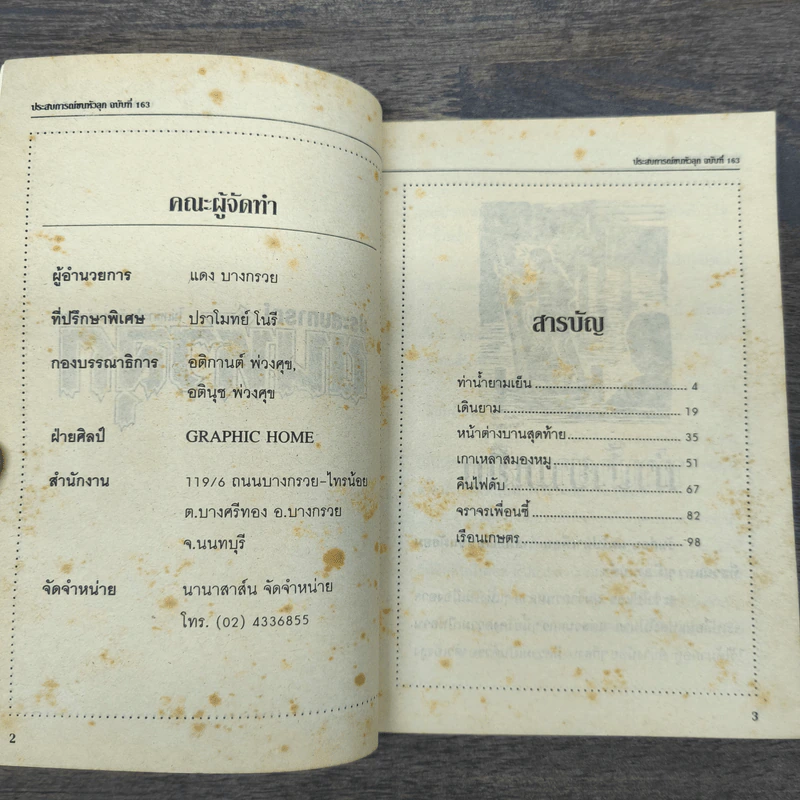 ประสบการณ์ขนหัวลุก ฉบับที่ 163
คณะผู้จัดทำ
ผู้อำนวยการ แดง บางกรวย
ที่ปรึกษาพิเศษ ปราโมทย์ โนรี
กองบรรณาธิการ อติกานต์ พ่วงศุข,
อตินุช พ่วงศุข
ฝ่ายศิลป์ GRAPHIC HOME
สำนักงาน 119/6 ถนนบางกรวย-ไทรน้อย
ต.บางศรีทอง อ.บางกรวย
จ.นนทบุรี
จัดจำหน่าย นานาสาส์น จัดจำหน่าย
โทร. (02) 4336855
2
ประสบการณ์ขนหัวลุก ฉบับที่ 163
สารบัญ
ท่าน้ำยามเย็น 4
เดินยาม 19
หน้าต่างบานสุดท้าย 35
เกาเหลาสมองหมู 51
คืนไฟดับ 67
จราจรเพื่อนซี้ 82
เรือนเกษตร 98
3